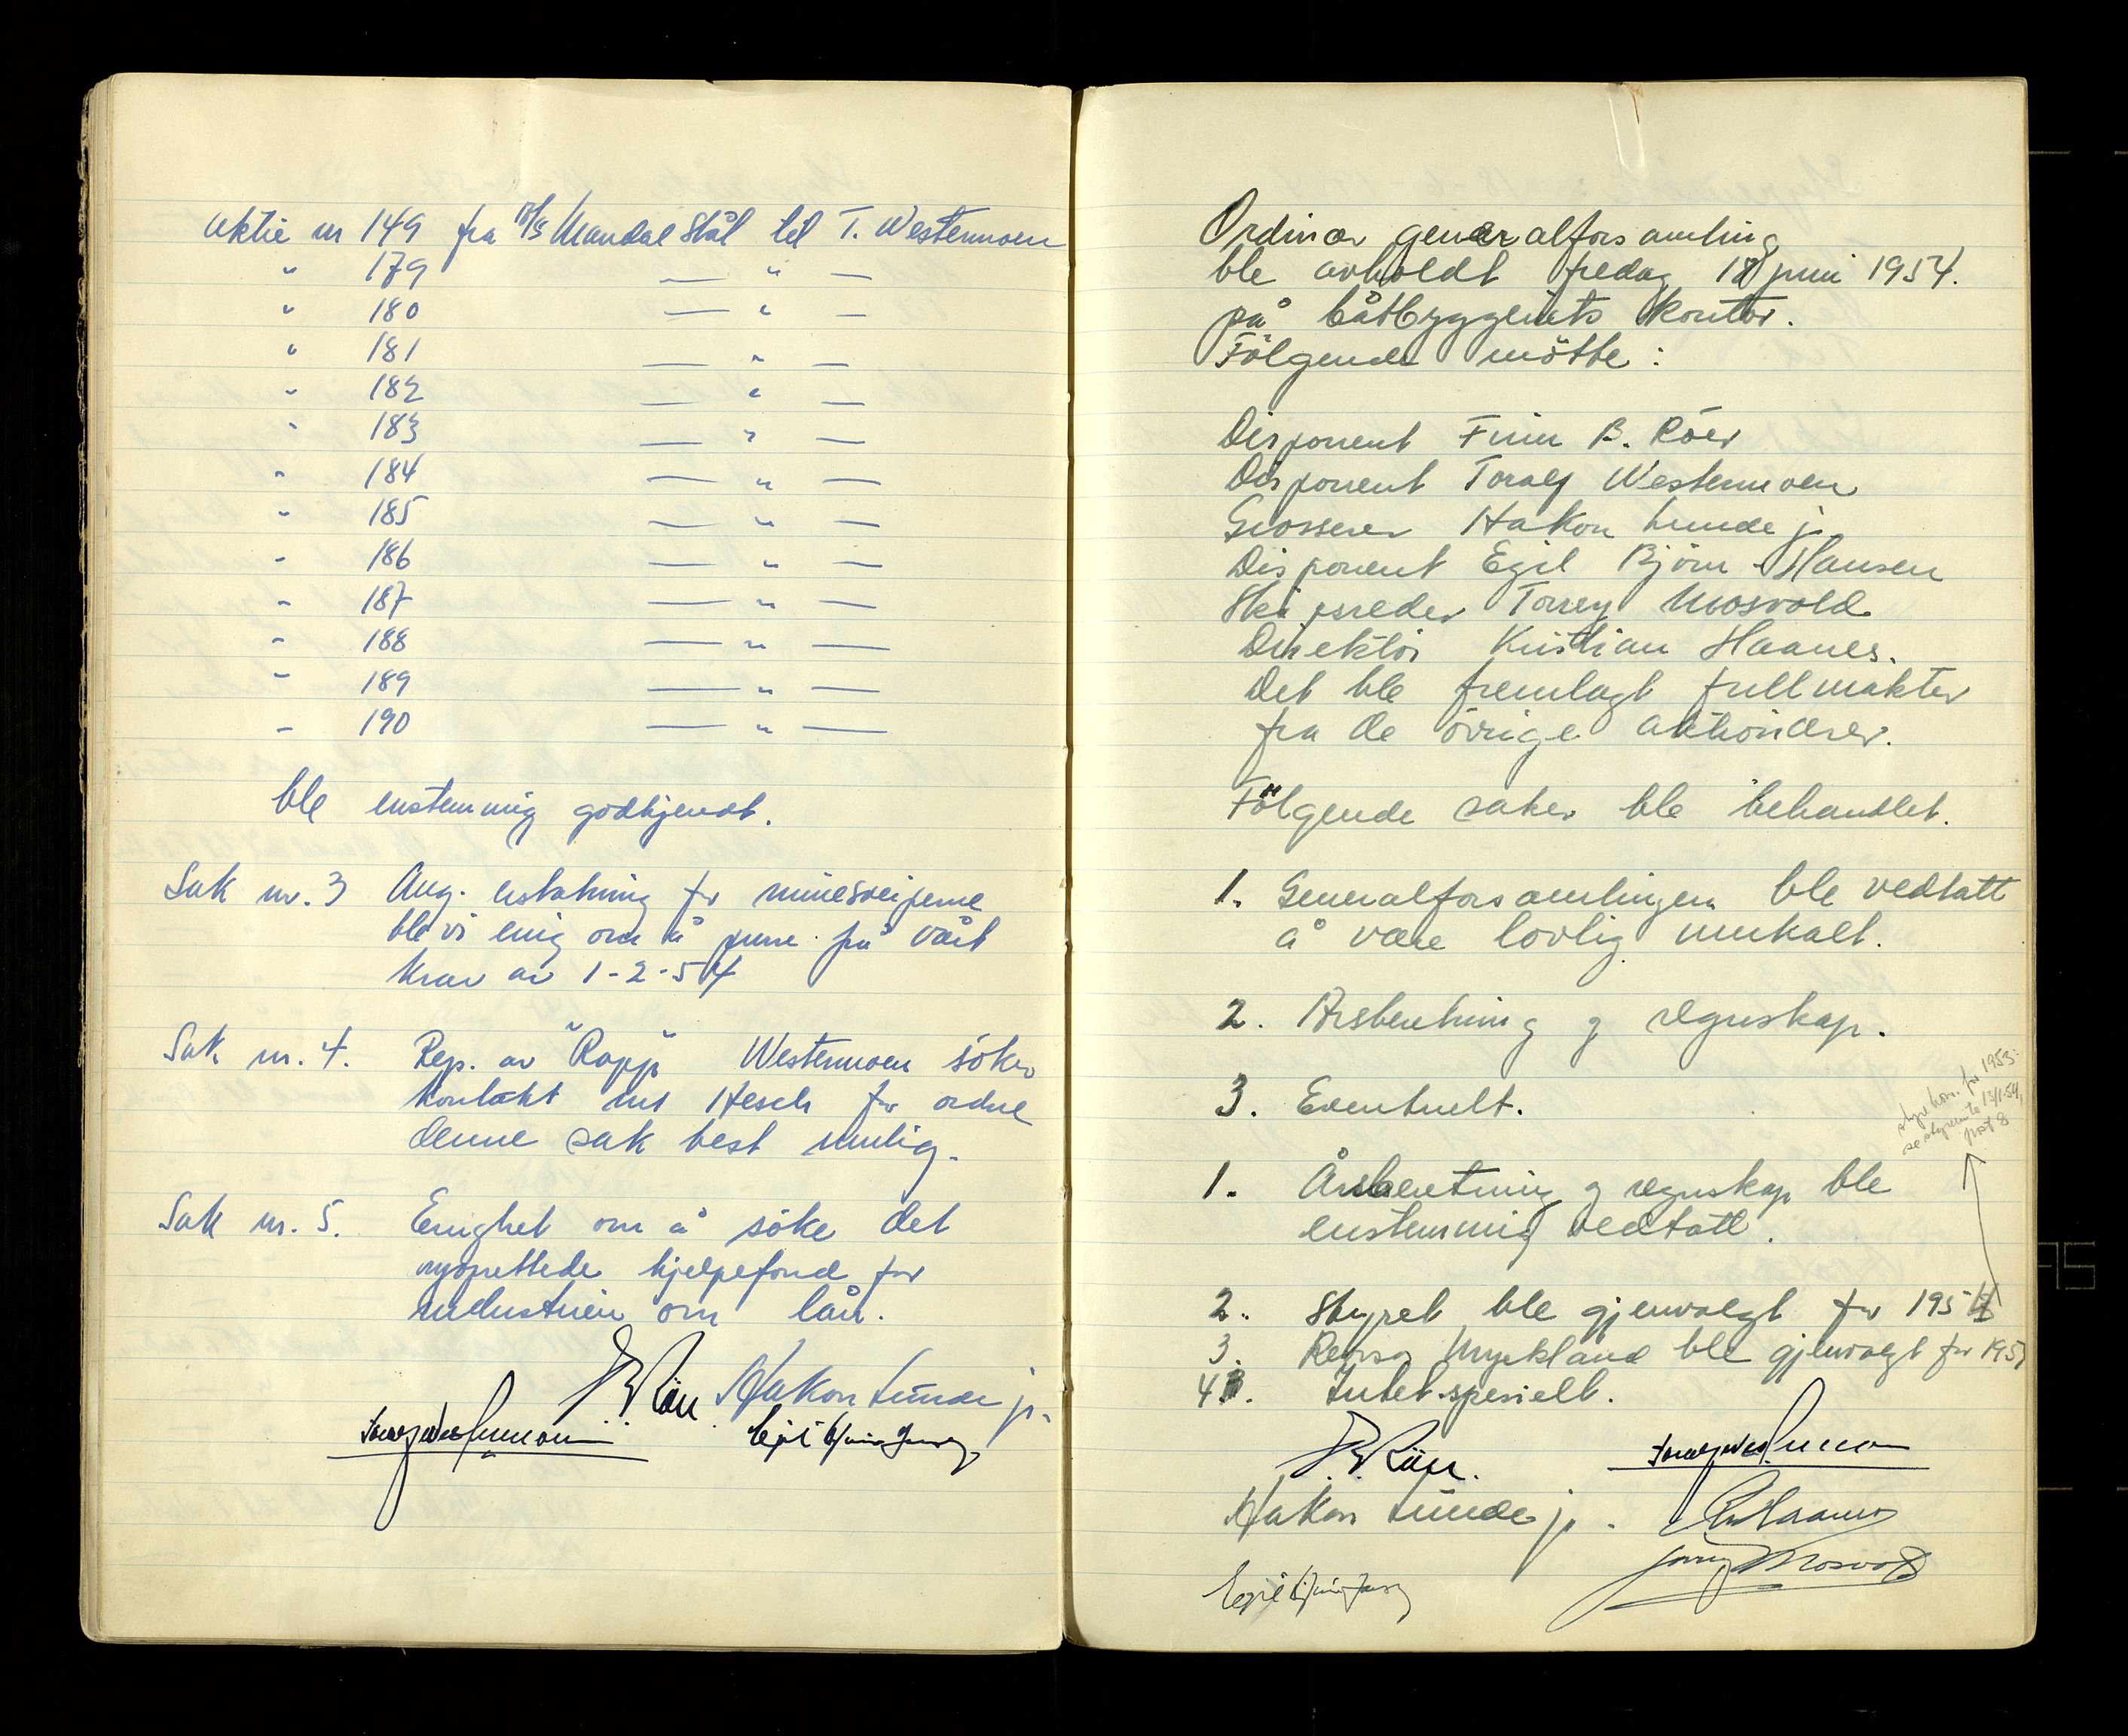 Aktie nr 149 fra A/S Mandal Stål til T. Westermoen
" 179 — " —
" 180 — " —
" 181 — " —
" 182 — " —
" 183 — " —
" 184 — " —
" 185 — " —
" 186 — " —
" 187 — " —
" 188 — " —
" 189 — " —
" 190 — " —
ble enstemmig godkjendt.
Sak nr. 3 Ang. erstatning for minesveiperne
ble vi enig om å purre på vårt
krav av 1-2-54
Sak nr. 4. Rep. av "Rapp" Westermoen söker
kontakt med Hesch for ordne
denne sak best mulig.
Sak nr. 5. Enighet om å söke det
nyoprettede hjelpefond for
industrien om lån.
Håkon Lunde jr.
Ordinær generalforsamling
ble avholdt fredag 18 juni 1954.
på båtbyggeriets kontor.
Fölgende mötte:
Disponent Finn B. Röer
Disponent Toralf Westermoen
Grosserer Håkon Lunde jr
Disponent Egil Bjørn-Hansen
Skipsreder Torrey Mosvold
Direktör Kristian Haanes.
Det ble fremlagt fullmakter
fra de övrige aktionærer.
Fölgende saker ble behandlet.
1. Generalforsamlingen ble vedtatt
å være lovlig innkalt.
2. Årsberetning og regnskap.
3. Eventuelt.
styrehon. for 1953:
se styremöte 13/1-54,
post 8
1. Årsberetning og regnskap ble
enstemmig vedtatt.
2. Styret ble gjenvalgt for 1954
3. Revisor Myrkland ble gjenvalgt for 195
4. Intet spesielt.
Håkon Lunde jr.
Torrey Mosvold